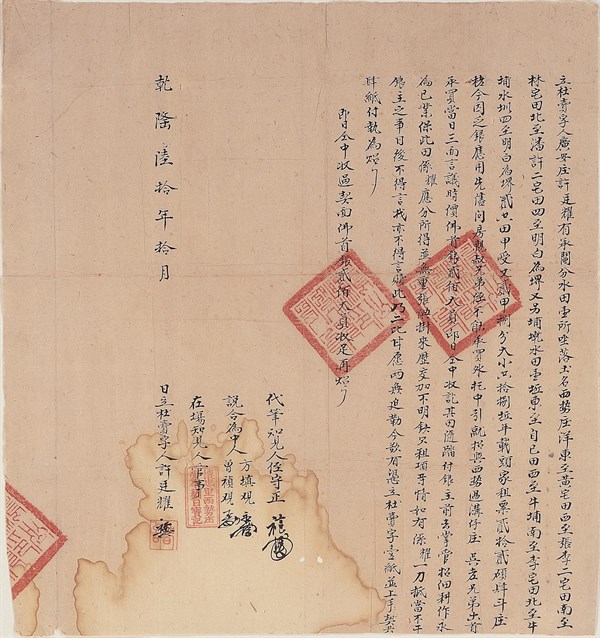 立杜賣字人廣安庄許廷耀有承鬮分水田壹所坐落土名西勢庄洋東至黃宅田西至張李二宅田南至
林宅田北至潘許二宅田四至明白為界又另埔墘水田壹坵東至自己田西至牛埔南至李宅田北至牛
埔水圳四至明白為界貳口田甲受又貳甲捌分大小共拾捌坵年載頭家租票貳拾貳碩肆斗庄
栳今因乏銀應用先儘問房親叔兄弟侄不能承買外托中引就招與西勢過溝仔庄吳 兄弟出首
承買當日三面言議時價佛首銀貳佰大員即日全中收訖其田隨踏付銀主前去掌管招佃耕作永
為己業保此田係耀應分所得並無重張典掛來歷交加不明欠租項等情如有係耀一力抵當不干
銀主之事日後不得言找亦不得言贖此乃二比甘愿兩無迫勒今欲有憑立杜賣字壹紙並上手契共
肆紙付執為炤
即日全中收過契面佛首銀貳佰大員收足再炤
代筆知見人侄守正
說合為中人方填現 曾禎現
在場知見人
乾隆陸拾年拾月 日立杜賣字人許廷耀